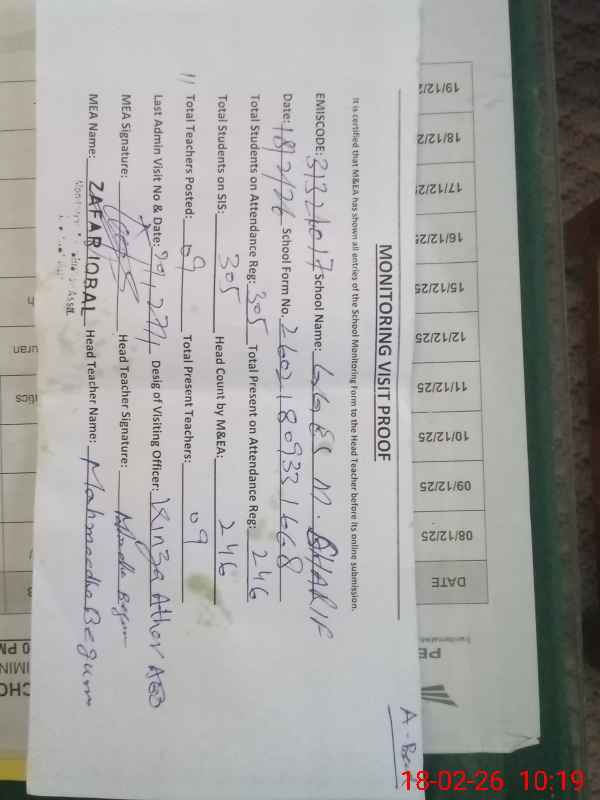 A-Ben
MONITORING VISIT PROOF
It is certified that M&EA has shown all entries of the School Monitoring Form to the Head Teacher before its online submission.
EMISCODE: 31321017 School Name: GGES M. SHARIF
Date: 18/2/26 School Form No. 2602180933 1668
Total Students on Attendance Reg: 305 Total Present on Attendance Reg: 246
Total Students on SIS: 305 Head Count by M&EA: 246
Total Teachers Posted: 09 Total Present Teachers: 09
Last Admin Visit No & Date: Desig of Visiting Officer: Kinza Ather AEO
MEA Signature: Head Teacher Signature:
MEA Name: ZAFAR IQBAL Head Teacher Name: Mahmooda Begum
DATE
08/12/25
09/12/25
10/12/25
11/12/25
12/12/25
15/12/25
16/12/25
17/12/25
18/12/2
19/12/2
PE
0 PM
IMIN
CHO
18-02-26 10:19